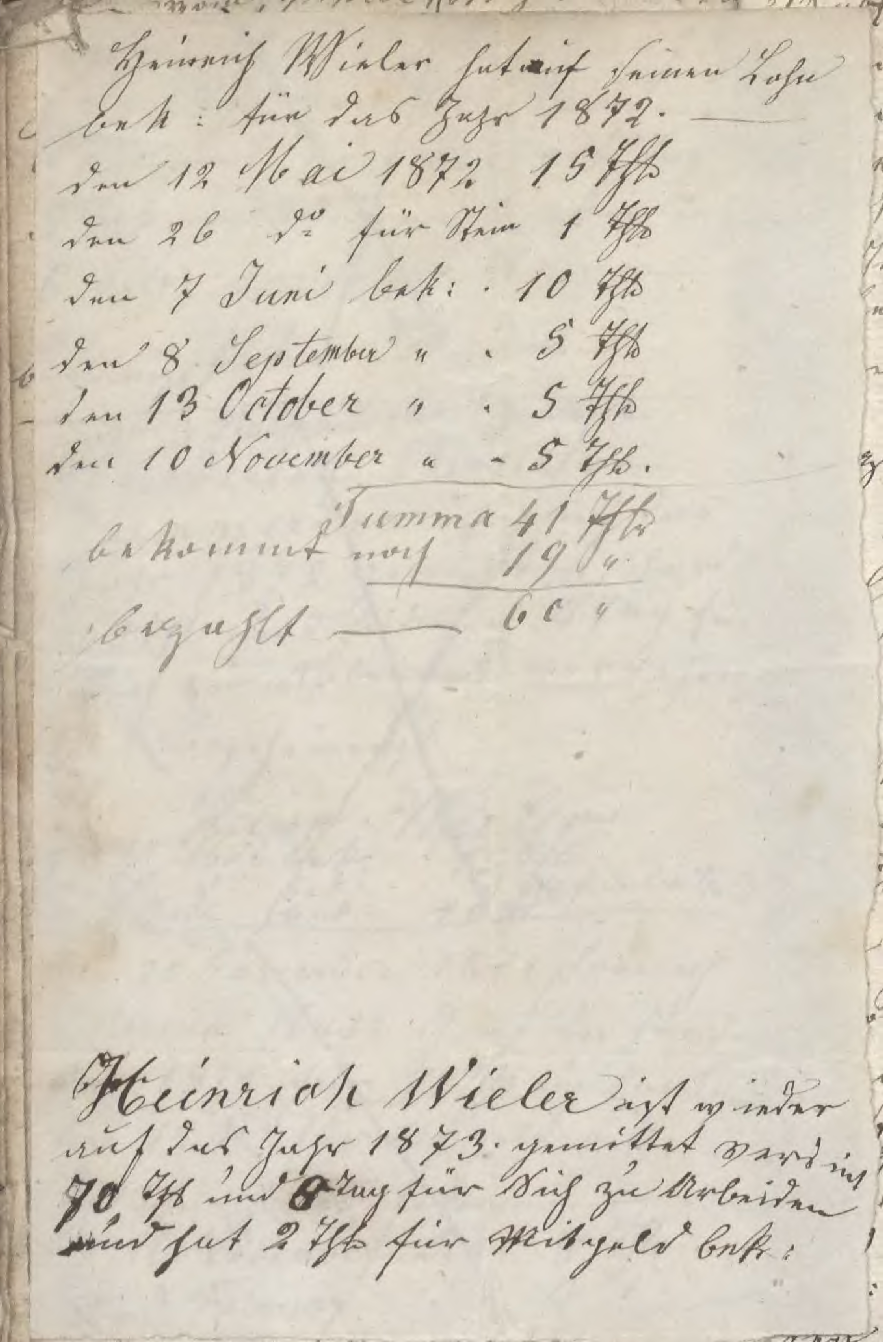 Heinrich Wieler hat auf seinen Lohn
bek: für das Jahr 1872.
den 12 Mai 1872 15 Thlr
den 26 do für Stein 1 Thlr
den 7 Juni bek: . 10 Thlr
den 8 September " . 5 Thlr
den 13 October " . 5 Thlr
den 10 November " - 5 Thlr.
Summa 41 Thlr
bekommt noch 19 "
60 "
bezahlt
Heinrich Wieler ist wieder
auf das Jahr 1873. gemittet
70 Thlr und 8 Tag für Sich zu Arbeiden
und hat 2 Thlr für Mitgeld bek: